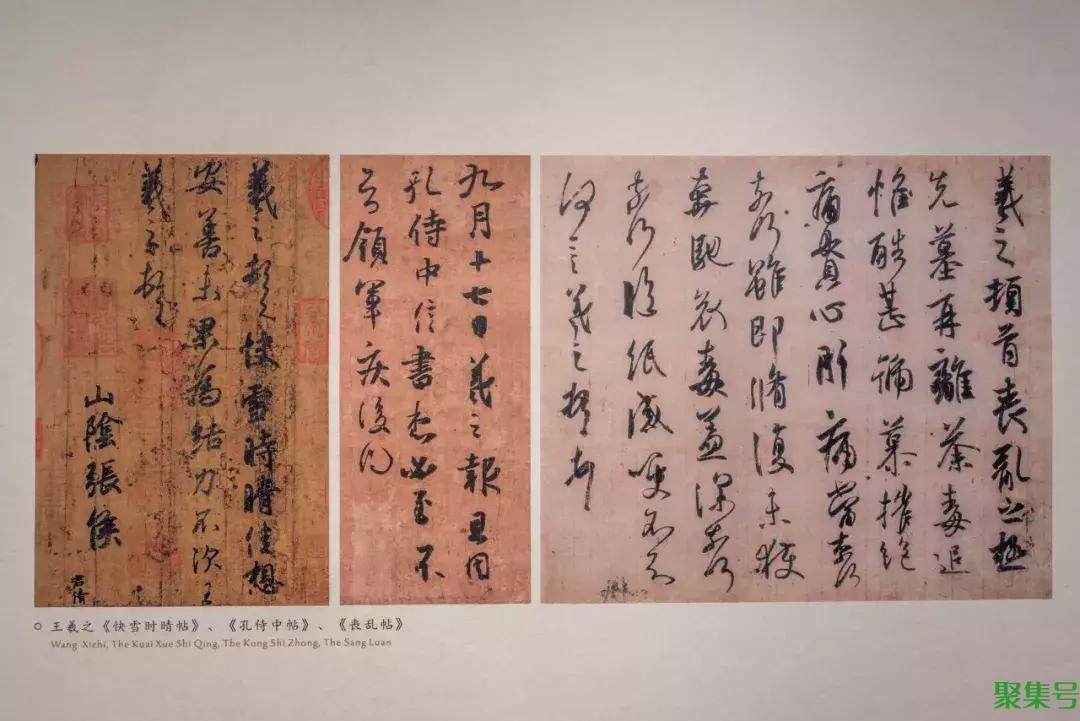 羲之頓首快雪時晴佳想
安善未果為結力不次王
羲之頓首
山陰張侯
君倩
九月十七日羲之報且因
孔侍中信書想必至不
知領軍疾後問
羲之頓首喪亂之極
先墓再離荼毒追
惟酷甚號慕摧絕
痛貫心肝痛當奈何
奈何雖即脩復未獲
奔馳哀毒益深奈何
奈何臨紙感哽不知
何言羲之頓首頓首
王羲之《快雪时晴帖》、《孔侍中帖》、《丧乱帖》
Wang Xizhi, The Kuai Xue Shi Qing, The Kong Shi Zhong, The Sang Luan
聚集号